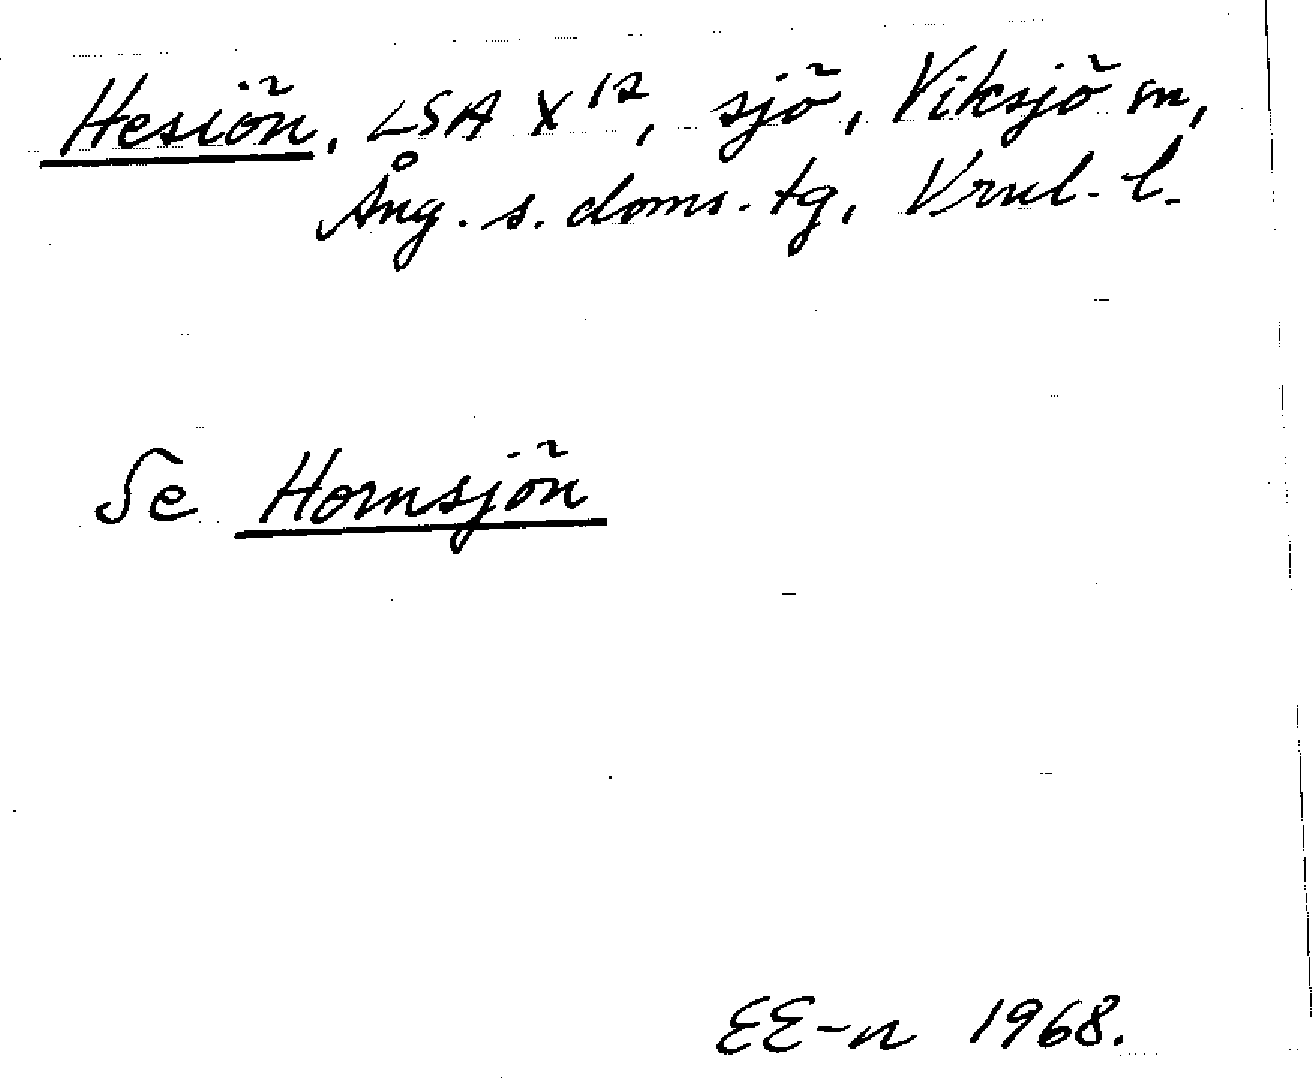 Hesiön, LSA X¹², sjö, Viksjö sn,
Ång. s. doms. tg, Vrnl. l.
Se Hornsjön
EE-n 1968.